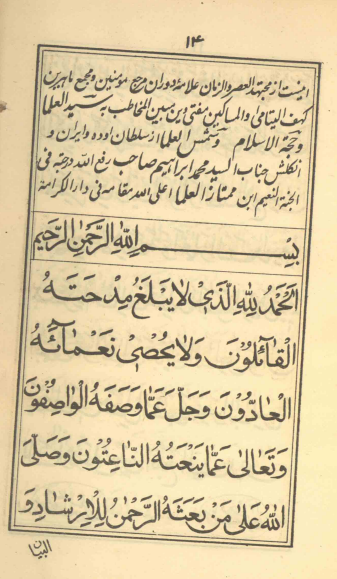 ۱۴
اینست از مجتهد العصر والزمان علامهٔ دوران مرجع مؤمنین و مجمع ماہرین
کہف الیتامی والمساکین مفتی دین مبین المخاطب بہ سید العلما
وحجة الاسلام وشمس العلما از سلطان اودہ وایران و
انگلش جناب السید محمد ابراہیم صاحب رفع اللہ درجتہ فی
الجنة النعیم ابن ممتاز العلما اعلی اللہ مقامہ فی دار الکرامة
بِسْمِ اللهِ الرَّحْمٰنِ الرَّحِيْمِ
اَلْحَمْدُ لِلّٰهِ الَّذِيْ لَا يَبْلَغُ مِدْحَتَهُ
الْقَائِلُوْنَ وَلَا يُحْصِيْ نَعْمَائَهُ
الْعَادُّوْنَ وَجَلَّ عَمَّا وَصَفَهُ الْوَاصِفُوْنَ
وَتَعَالٰى عَمَّا يَنْعَتُهُ النَّاعِتُوْنَ وَصَلَّى
اللهُ عَلٰى مَنْ بَعَثَهُ الرَّحْمٰنُ لِلْاِرْشَادِ وَ
البیان